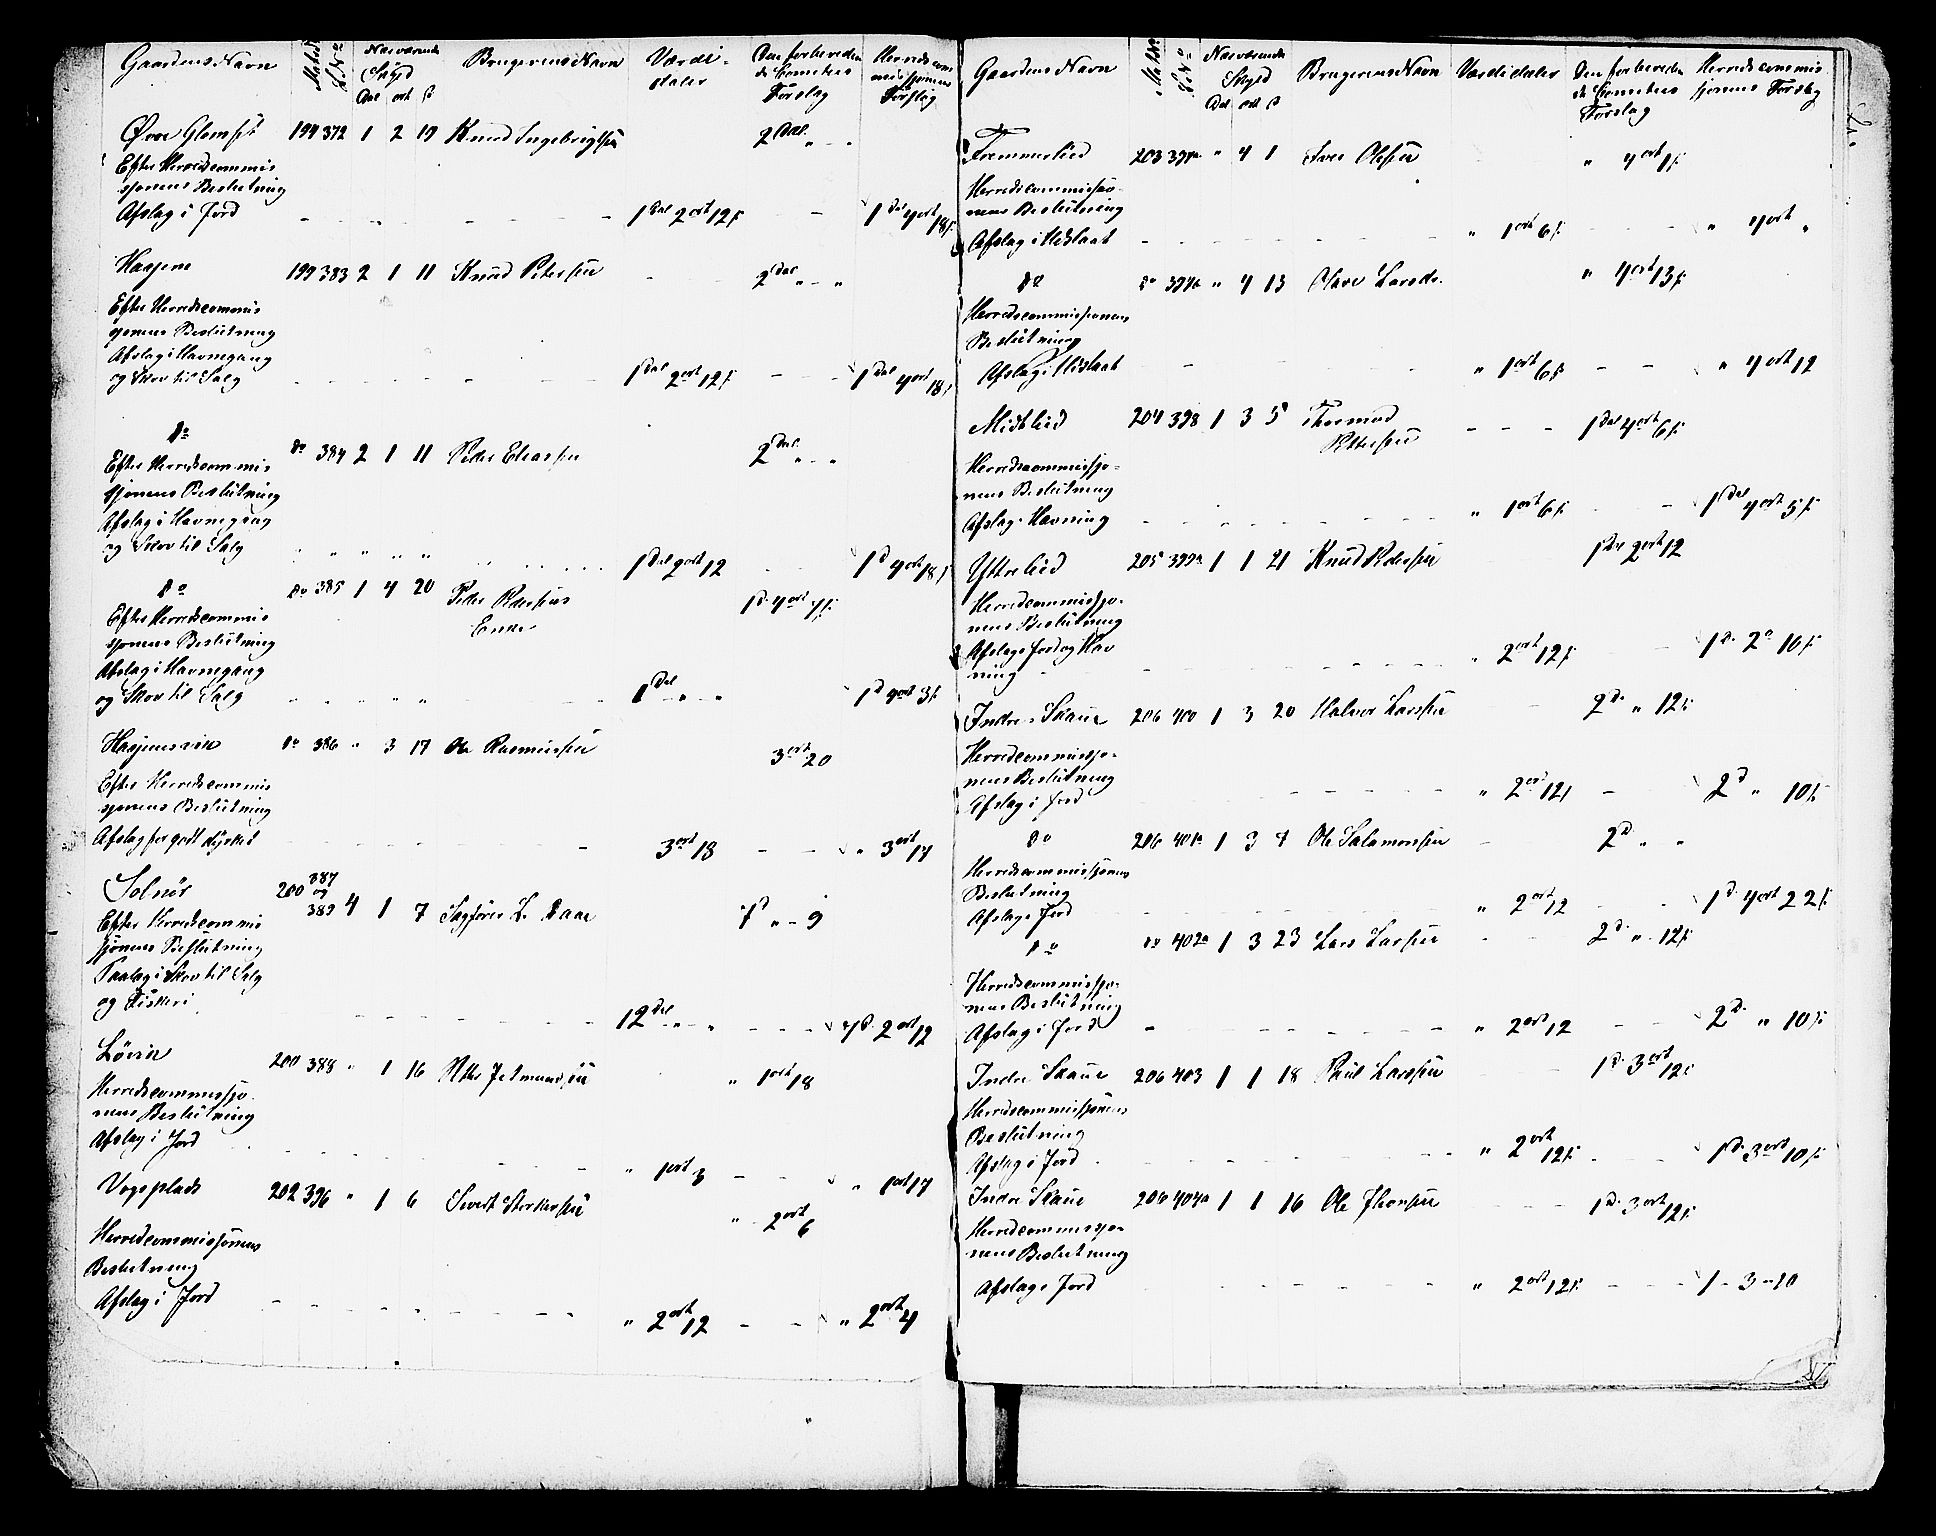 Gaardens Navn Matr No L. No Nuværende Skyld Dal ort ß Brugerens Navn Værdi-daler Den forberedende Comitees Forslag Herredscommissjonens Forslag
Øvre Glomset 194 372 1 2 19 Knud Ingebrigtsen 2 Dal. " - -
Efter Herredscommis
sjonens Beslutning
Afslag i Jord - - - - 1 Dal 2 ort 12 ß - - 1 Dal 4 ort 18 ß
Hasjem 199 383 2 1 11 Knud Petersen - - 2 Dal " - "
Efter Herredscommis
sjonens Beslutning
Afslag i Havnegang
og Skov til Salg - - - - 1 Dal 2 ort 12 ß - - - 1 Dal 4 ort 18 ß
do do 384 2 1 11 Peder Eliassen 2 Dal " - "
Efter Herredscommis
sjonens Beslutning
Afslag i Havnegang
og Skov til Salg " " " " " 1 Dal 2 ort 12 1 D 4 ort 18 ß
do do 385 1 4 20 Peder Pedersens 1 D. 4 ort 7 ß
Enke
Efter Herredscommis
sjonens Beslutning
Afslag i Havnegang
og Skov til Salg " " " " " 1 Dal " - " 1 D 2 ort 3 ß
Hasjemsvin do 386 " 3 17 Ole Rasmussen 3 ort 20
Efter Herredscommis
sjonens Beslutning
Afslag for godt dyrket - - - - 3 ort 18 - - " 3 ort 17
Solnør 200 387 og 389 4 1 7 Sagfører L. Daae 7 D " - 9
Efter Herredscommis
sjonens Beslutning
Paalag i Skov til Salg
og Fiskeri - - - - 12 Dal " - " - - - 7 D. 2 ort 12
Løvin 200 388 " 1 16 Peter Jetmundsen " 1 ort 18
Herredscommissjo-
nens Beslutning
Afslag i Jord - - - - " 1 ort 3 - - " 1 ort 17
Vogsplads 202 396 " 1 6 Sivert Storkersen " - 2 ort 6
Herredscommissjonens
Beslutning
Afslag i Jord - - - - " 2 ort 12 - - " 2 ort 4
Gaardens Navn Matr No L. No Nuværende Skyld Dal ort ß Brugerens Navn Værdidaler Den forberedende Comitees Forslag Herredscommissjonens Forslag
Fremmerlied 203 397a " 4 1 Iver Olsen " 4 ort 1 ß
Herredscommissjo-
nens Beslutning
Afslag i Udslaat - - - - " 1 ort 6 ß - - - " 4 ort "
do do 397b " 4 13 Olave Larsdr. " 4 ort 13 ß
Herredscommissjonens
Beslutning
Afslag i Udslaat - - - - " 1 ort 6 ß - - " 4 ort 12
Midtlied 204 398 1 3 5 Thormod - - - 1 Dal 4 ort 6 ß
Pettersen
Herredscommissjo-
nens Beslutning
Afslag i Havning - - - - " 1 ort 6 ß - - 1 Dal 4 ort 5 ß
Ytrelied 205 399a 1 1 21 Knud Pedersen 1 Dal 2 ort 12
Herredscommissjo-
nens Beslutning
Afslag i Jord og Hav
ning - - - - " 2 ort 12 ß - - 1 D. 2 o 10 ß
Indre Skaue 206 400 1 3 20 Halvor Larsen - 2 D. " 12 ß
Herredscommissjo-
nens Beslutning
Afslag i Jord - - - - " 2 ort 12 ß - 2 D " 10 ß
do 206 401a 1 3 4 Ole Salamonsen - 2 D. " "
Herredscommissjonens
Beslutning
Afslag i Jord - - - - " 2 ort 12 - - 1 D. 4 ort 22 ß
do do 402a 1 3 23 Lars Larsen - - 2 D. " - 12 ß
Herredscommissjo-
nens Beslutning
Afslag i Jord - - - - " 2 ort 12 - - 2 D. " 10 ß
Indre Skaue 206 403 1 1 18 Paul Larsen - - 1 D. 3 ort 12 ß
Herredscommissjonens
Beslutning
Afslag i Jord - - - - " 2 ort 12 ß - - 1 D. 3 ort 10 ß
Indre Skaue 206 404a 1 1 16 Ole Jhonsen - - - 1 D. 3 ort 12 ß
Herredscommissjo-
nens Beslutning
Afslag i Jord - - - - " 2 ort 12 ß - - - 1 - 3 - 10